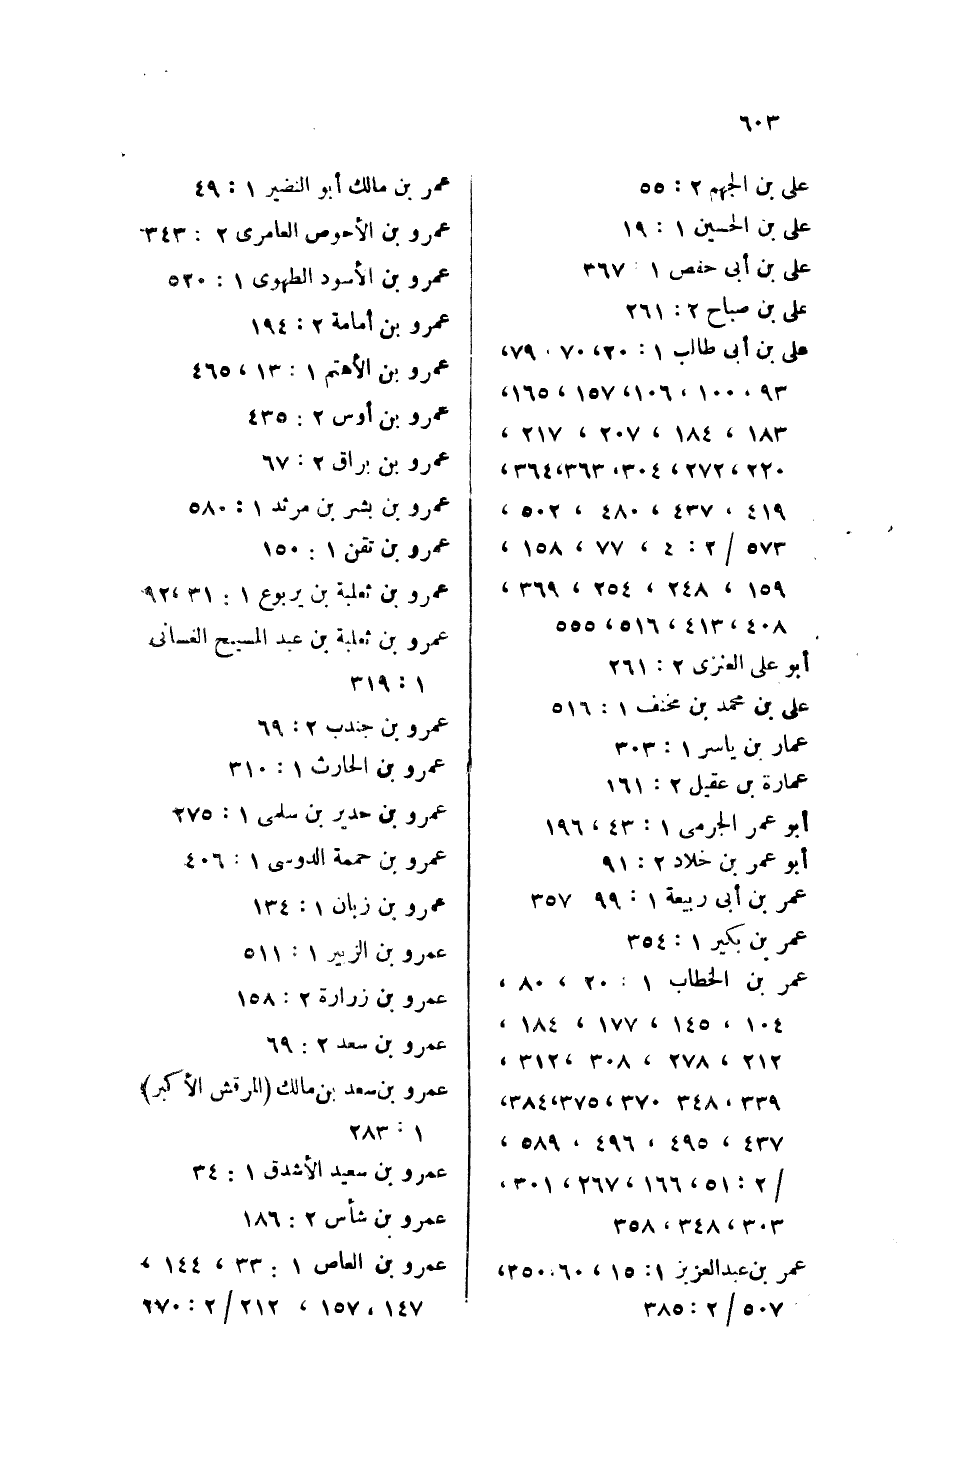 ٦٠٣
على بن الجهم ٢ : ٥٥
على بن الحسين ١ : ١٩
على بن أبى حفص ١ : ٣٦٧
على بن صباح ٢ : ٢٦١
على بن أبى طالب ١ : ٢٠، ٧٠ ، ٧٩،
٩٣ ، ١٠٠ ، ١٠٦، ١٥٧ ، ١٦٥،
١٨٣ ، ١٨٤ ، ٢٠٧ ، ٢١٧ ،
٢٢٠ ، ٢٧٢ ، ٣٠٤، ٣٦٣، ٣٦٤ ،
٤١٩ ، ٤٣٧ ، ٤٨٠ ، ٥٠٢ ،
٥٧٣ / ٢ : ٤ ، ٧٧ ، ١٥٨ ،
١٥٩ ، ٢٤٨ ، ٢٥٤ ، ٣٦٩ ،
٤٠٨ ، ٤١٣ ، ٥١٦ ، ٥٥٥
أبو على العنزى ٢ : ٢٦١
على بن محمد بن مخنف ١ : ٥١٦
عمار بن ياسر ١ : ٣٠٣
عمارة بن عقيل ٢ : ١٦١
أبو عمر الجرمى ١ : ٤٣ ، ١٩٦
أبو عمر بن خلاد ٢ : ٩١
عمر بن أبى ربيعة ١ : ٩٩ ٣٥٧
عمر بن بكير ١ : ٣٥٤
عمر بن الخطاب ١ : ٢٠ ، ٨٠ ،
١٠٤ ، ١٤٥ ، ١٧٧ ، ١٨٤ ،
٢١٢ ، ٢٧٨ ، ٣٠٨ ، ٣١٢ ،
٣٣٩ ، ٣٤٨ ٣٧٠ ، ٣٧٥، ٣٨٤،
٤٣٧ ، ٤٩٥ ، ٤٩٦ ، ٥٨٩ ،
/ ٢ : ٥١ ، ١٦٦ ، ٢٦٧ ، ٣٠١ ،
٣٠٣ ، ٣٤٨ ، ٣٥٨
عمر بن عبدالعزيز ١: ١٥ ، ٦٠، ٣٥٠،
٥٠٧ / ٢ : ٣٨٥
عمر بن مالك أبو النضير ١ : ٤٩
عمرو بن الأحوص العامرى ٢ : ٣٤٣
عمرو بن الأسود الطهوى ١ : ٥٢٠
عمرو بن أمامة ٢ : ١٩٤
عمرو بن الأهتم ١ : ١٣ ، ٤٦٥
عمرو بن أوس ٢ : ٤٣٥
عمرو بن براق ٢ : ٦٧
عمرو بن بشر بن مرثد ١ : ٥٨٠
عمرو بن تقن ١ : ١٥٠
عمرو بن ثعلبة بن يربوع ١ : ٣١ ، ٩٢
عمرو بن ثعلبة بن عبد المسيح الغسانى
١ : ٣١٩
عمرو بن جندب ٢ : ٦٩
عمرو بن الحارث ١ : ٣١٠
عمرو بن حدير بن سلمى ١ : ٢٧٥
عمرو بن حممة الدوسى ١ : ٤٠٦
عمرو بن زبان ١ : ١٣٤
عمرو بن الزبير ١ : ٥١١
عمرو بن زرارة ٢ : ١٥٨
عمرو بن سعد ٢ : ٦٩
عمرو بن سعد بن مالك (المرقش الأكبر)
١ : ٢٨٣
عمرو بن سعيد الأشدق ١ : ٣٤
عمرو بن شأس ٢ : ١٨٦
عمرو بن العاص ١ : ٣٣ ، ١٤٤ ،
١٤٧ ، ١٥٧ ، ٢١٢ / ٢ : ٦٧٠